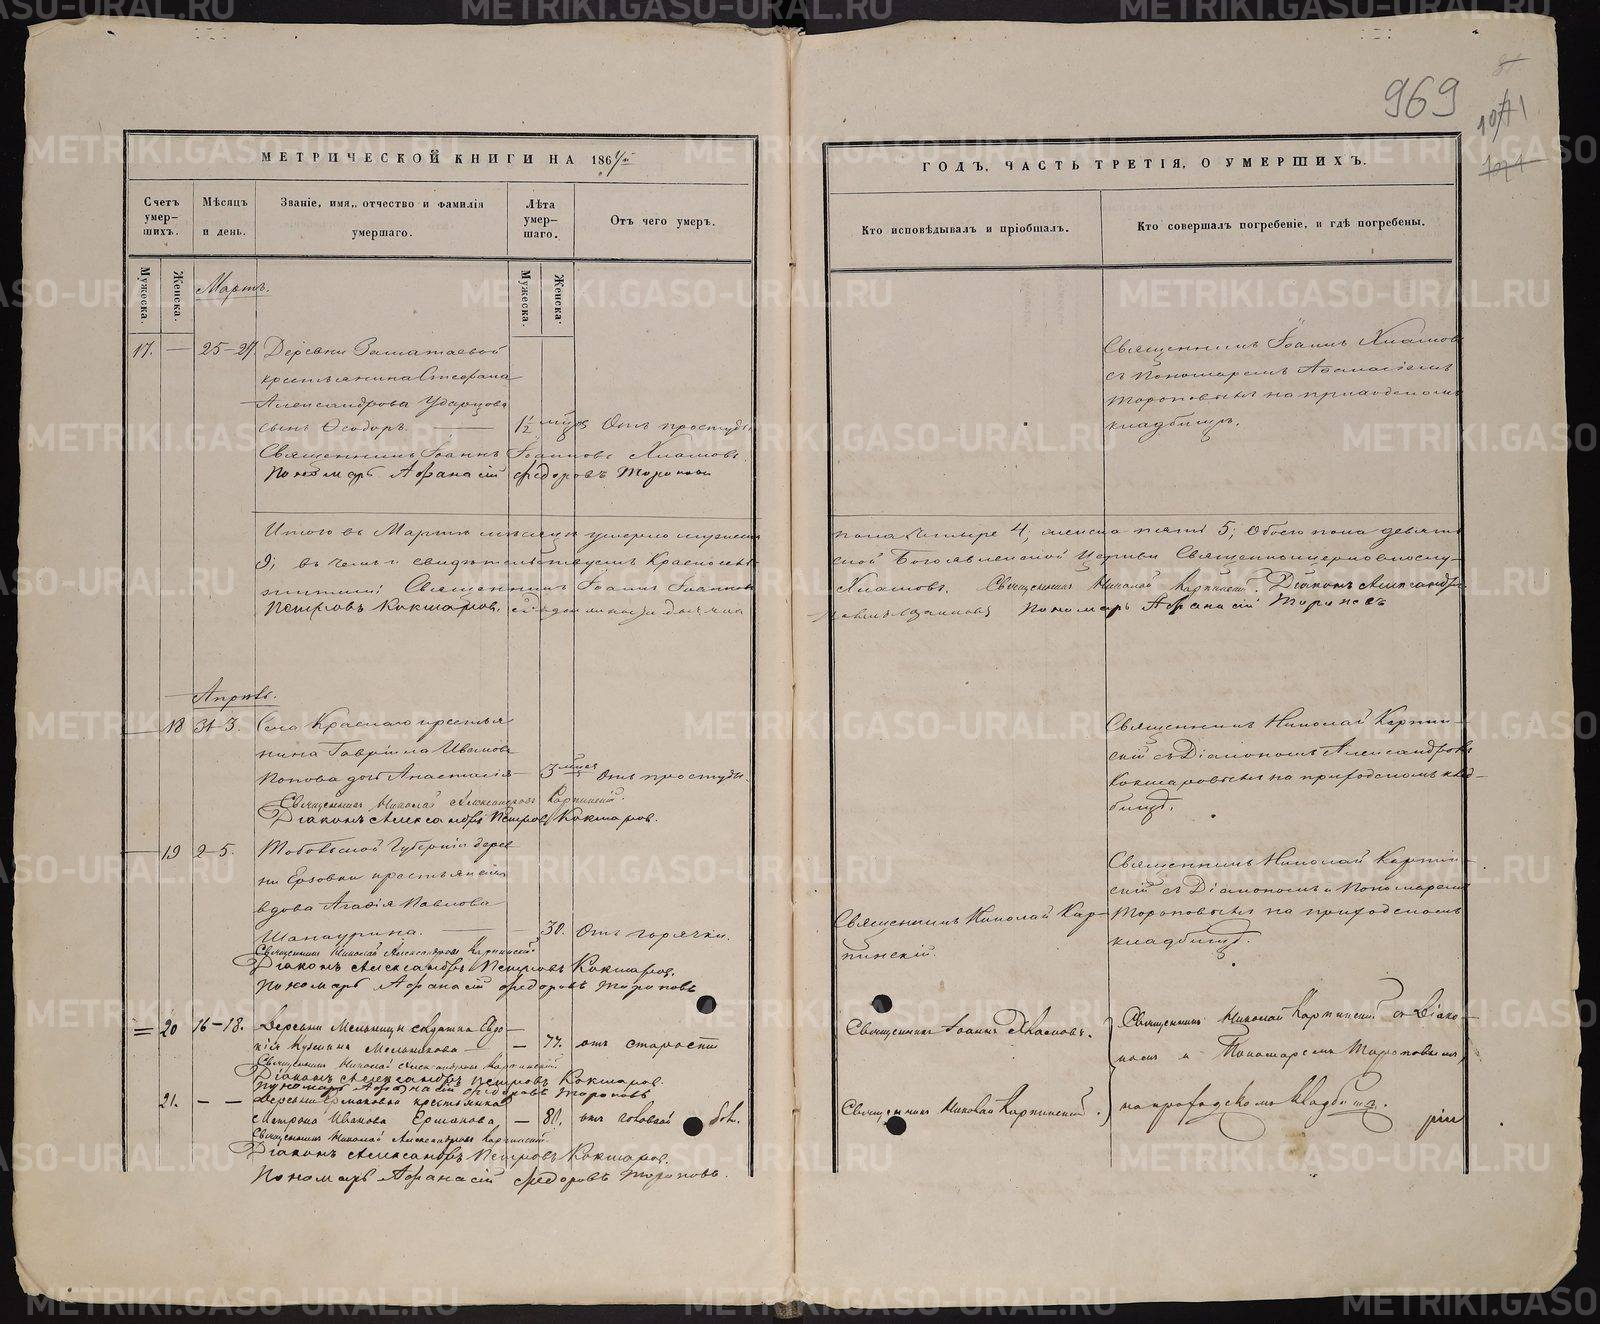 969
МЕТРИЧЕСКОЙ КНИГИ НА 186
ГОДЪ, ЧАСТЬ ТРЕТІЯ, О УМЕРШИХЪ.
Счетъ умер-
шихъ.
Мѣсяцъ
и день.
Званіе, имя, отчество и фамилія
умершаго.
Лѣта
умер-
шаго.
Отъ чего умеръ.
Кто исповѣдывалъ и пріобщалъ.
Кто совершалъ погребеніе, и гдѣ погребены.
Мужеска.
Женска.
Мужеска.
Женска.
Мартъ.
17. — 25-27 Деревни
крестьянина Стефана
Александрова Ударцова
сынъ Ѳеодоръ. 1½ Отъ простуды
Священникъ Іоаннъ Іоанновъ Хламовъ.
Пономарь Афанасій Федоровъ Тороповъ
Священникъ Іоаннъ Хламовъ
съ Пономаремъ Афанасіемъ
Тороповымъ на приходскомъ
кладбищѣ.
Итого въ Мартѣ мѣсяцѣ умерло мужеска
пола четыре 4, женска пять 5; Обоего пола девять
9; въ чемъ и свидѣтельствуемъ Красносель-
ской Богоявленской Церкви Священноцерковнослу-
жители: Священникъ Іоаннъ Іоанновъ
Хламовъ. Священникъ Николай Карпинскій. Діаконъ Александръ
Петровъ Кокшаровъ.
Пономарь Афанасій Тороповъ
Апрѣль.
18 31-3. Села Краснаго крестья
нина Гавріила Иванова
Попова дочь Анастасія 3 мѣсяц отъ простуды.
Священникъ Николай Александровъ Карпинскій.
Діаконъ Александръ Петровъ Кокшаровъ.
Священникъ Николай Карпин-
скій съ Діакономъ Александромъ
Кокшаровымъ на приходскомъ клад-
бищѣ.
19 2-5. Тобольской Губерніи дерев
ни Ерзовки крестьянская
вдова Агафія Павлова
Шапаурина. 30. Отъ горячки.
Священникъ Николай Александровъ Карпинскій
Діаконъ Александръ Петровъ Кокшаровъ.
Пономарь Афанасій Федоровъ Тороповъ
Священникъ Николай Кар-
пинскій.
Священникъ Николай Карпин-
скій съ Діакономъ и Пономаремъ
Тороповымъ на приходскомъ
кладбищѣ.
20 16-18. Деревни Мельницы вдова Евдо-
кія Кузмина Мельникова — 77. отъ старости
Священникъ Николай Александровъ Карпинскій
Діаконъ Александръ Петровъ Кокшаровъ.
Пономарь Афанасій Федоровъ Тороповъ
Священникъ Іоаннъ Хламовъ.
Священникъ Николай Карпинскій съ Діако-
номъ и Пономаремъ Тороповымъ
21. — — Деревни Ермаковой крестьянка
Матрона Иванова Ермакова — 80, отъ головной боли.
Священникъ Николай Александровъ Карпинскій
Діаконъ Александръ Петровъ Кокшаровъ.
Пономарь Афанасій Федоровъ Тороповъ.
Священникъ Николай Карпинскій.
на приходскомъ кладбищѣ.
METRIKI.GASO-URAL.RU